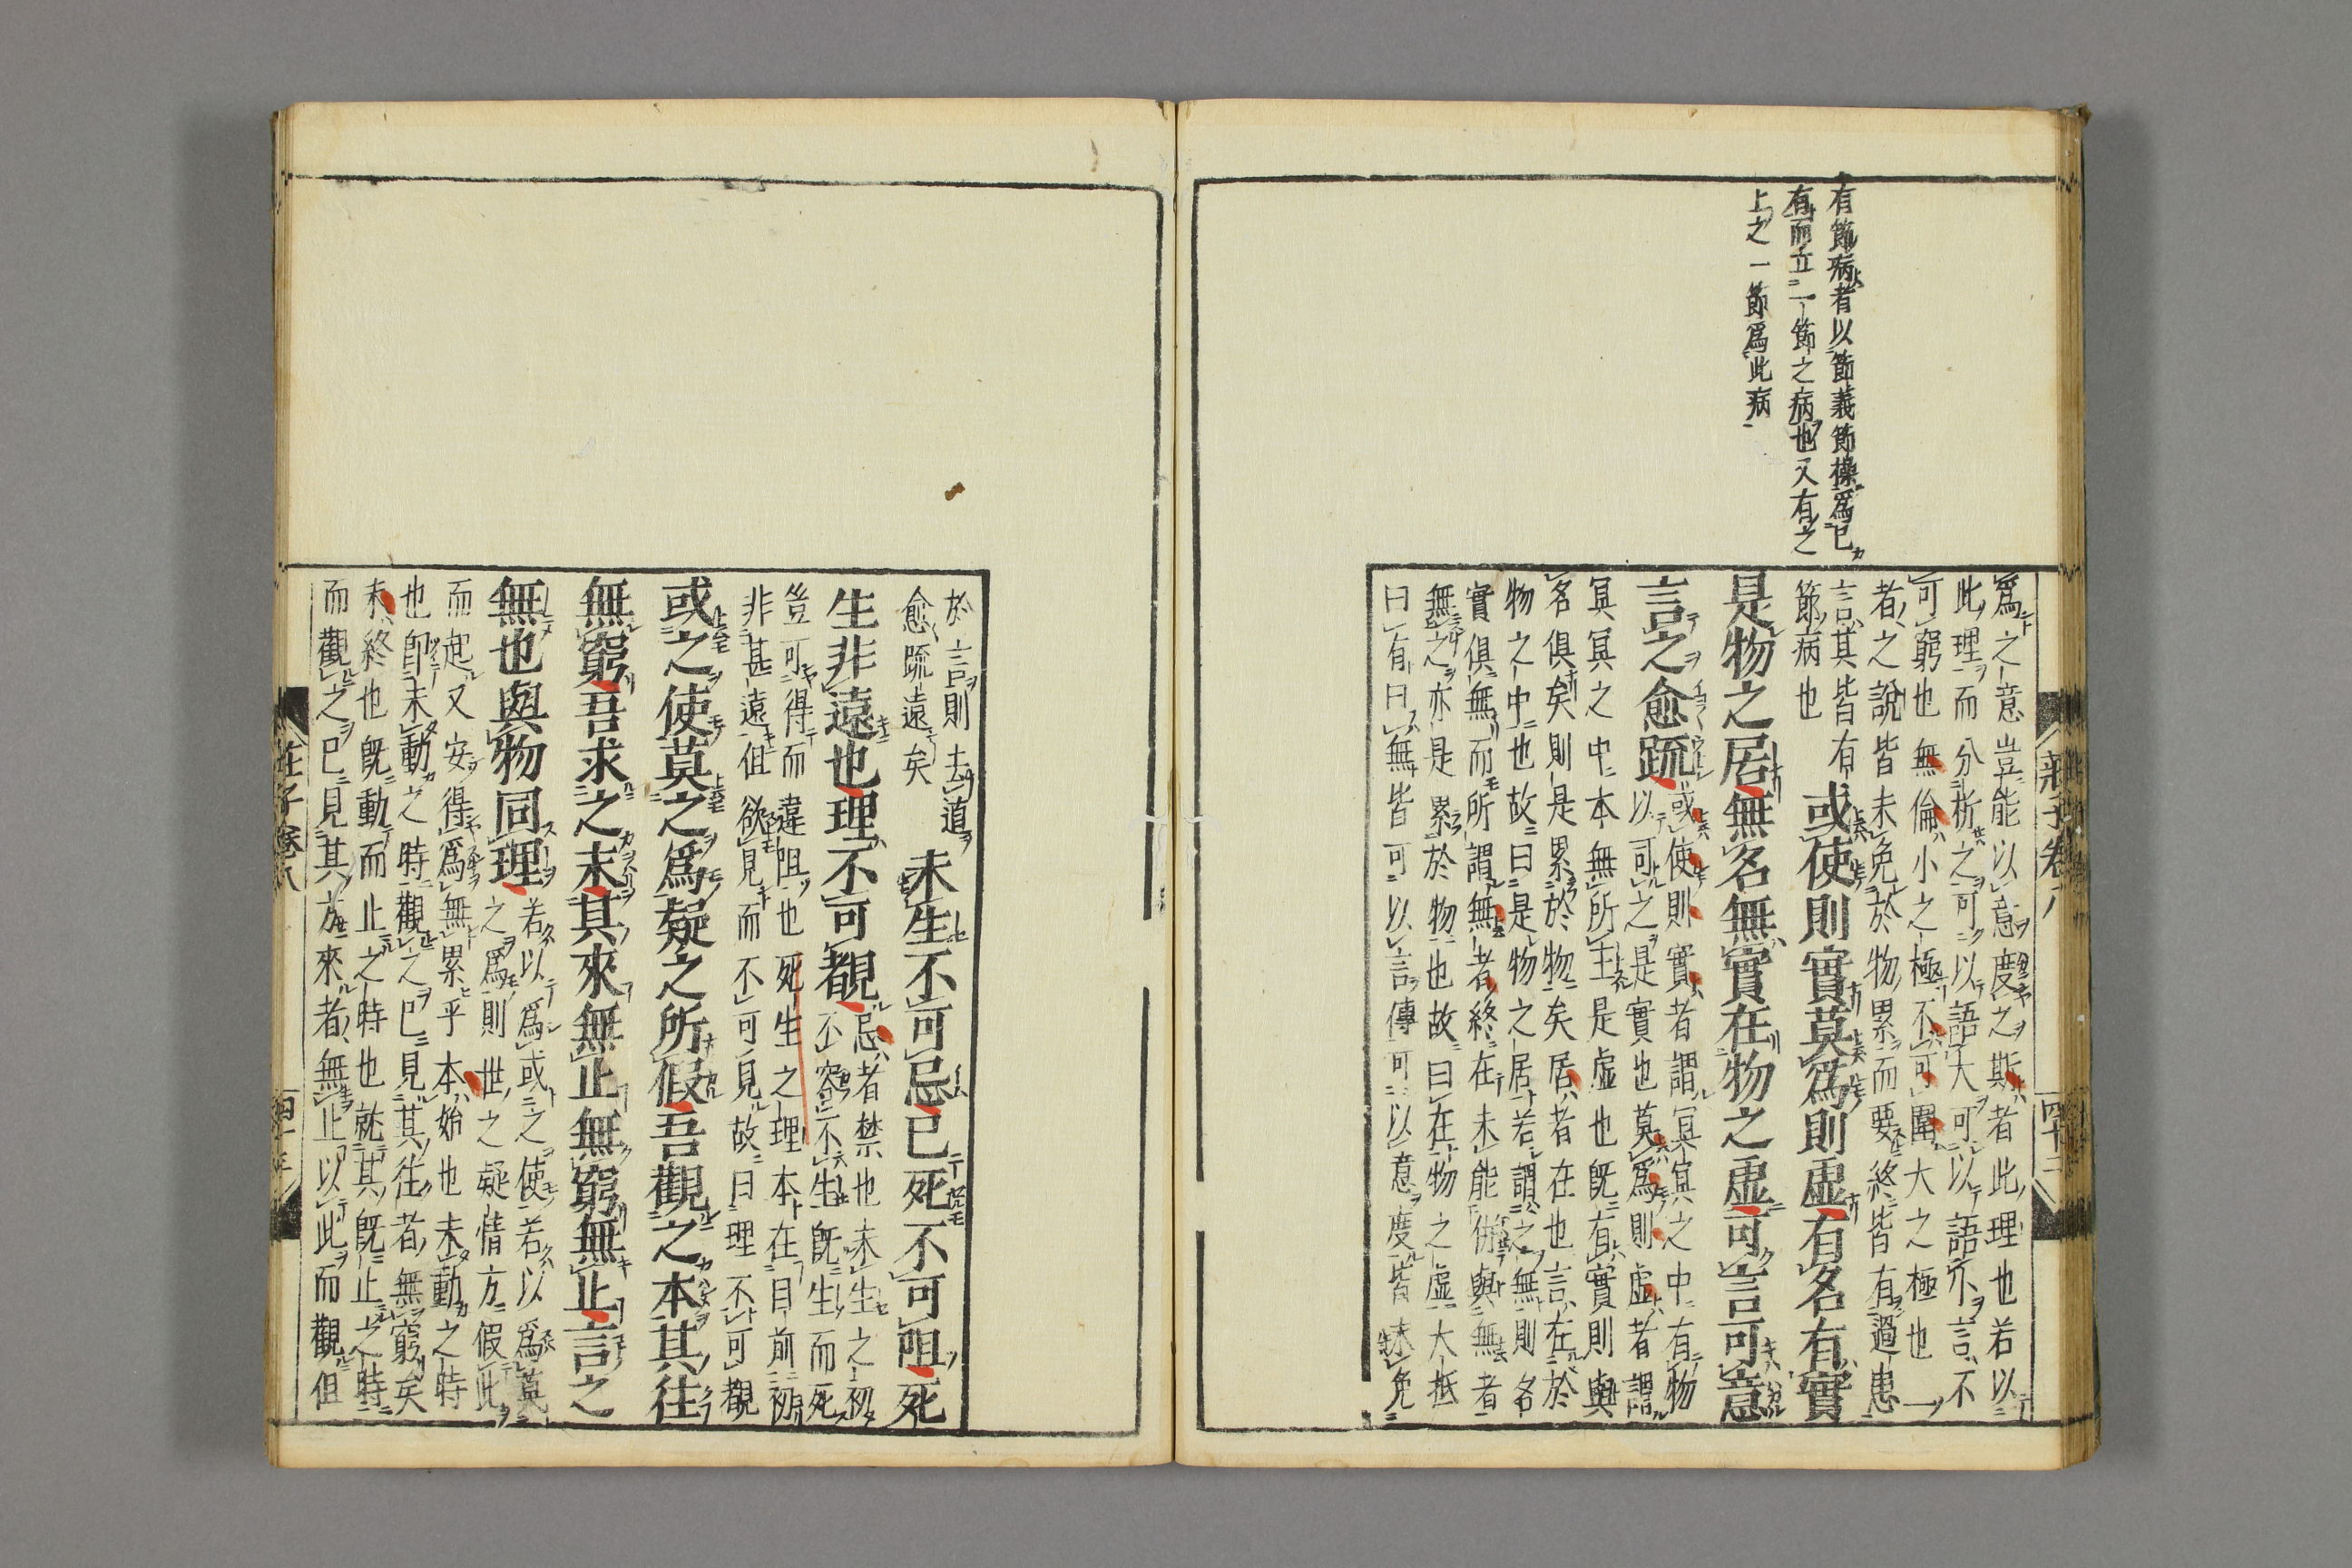 有節病者以節義節操爲已
有而立一節之病也又有之
上之一節爲此病
爲之意豈能以意度之斯者此理也若以
此理而分析之可以語大可以語不言不
可窮也無倫小之極不可圍大之極也
者之說皆未免於物累而要終皆有過患
言其皆有
節病也
或使則實莫爲則虛有名有實
是物之居無名無實在物之虛可言可意
言之愈疏
或使則實者謂冥冥之中有物
以可之是實也莫爲則虛者謂
冥冥之中本無所主是虛也旣有實則與
名俱矣則是累於物矣居者在也言在於
物之中也故曰是物之居若謂之無則名
實俱無而所謂無者終在未能俯與無者
無之亦是累於物也故曰在物之虛大抵
曰有曰無皆可以言傳可以意度皆未免
於言則去道
愈疏遠矣
未生不可忌已死不可阻死
生非遠也理不可覩
忌者禁也未生之初
不容不生旣生而死
豈可得而違阻也死生之理本在目前初
非甚遠但欲見而不可見故曰理不可覩
或之使莫之爲疑之所假吾觀之本其往
無窮吾求之末其來無止無窮無止言之
無也與物同理
若以爲或之使若以爲莫
之爲則世之疑情方假此
而起又安得爲無累乎本始也未動之時
也卽未動之時觀之已見其往者無窮矣
末終也旣動而止之時也就其旣止之時
而觀之已見其方來者無止以此而觀但
莊子卷八
四十三
莊子卷八